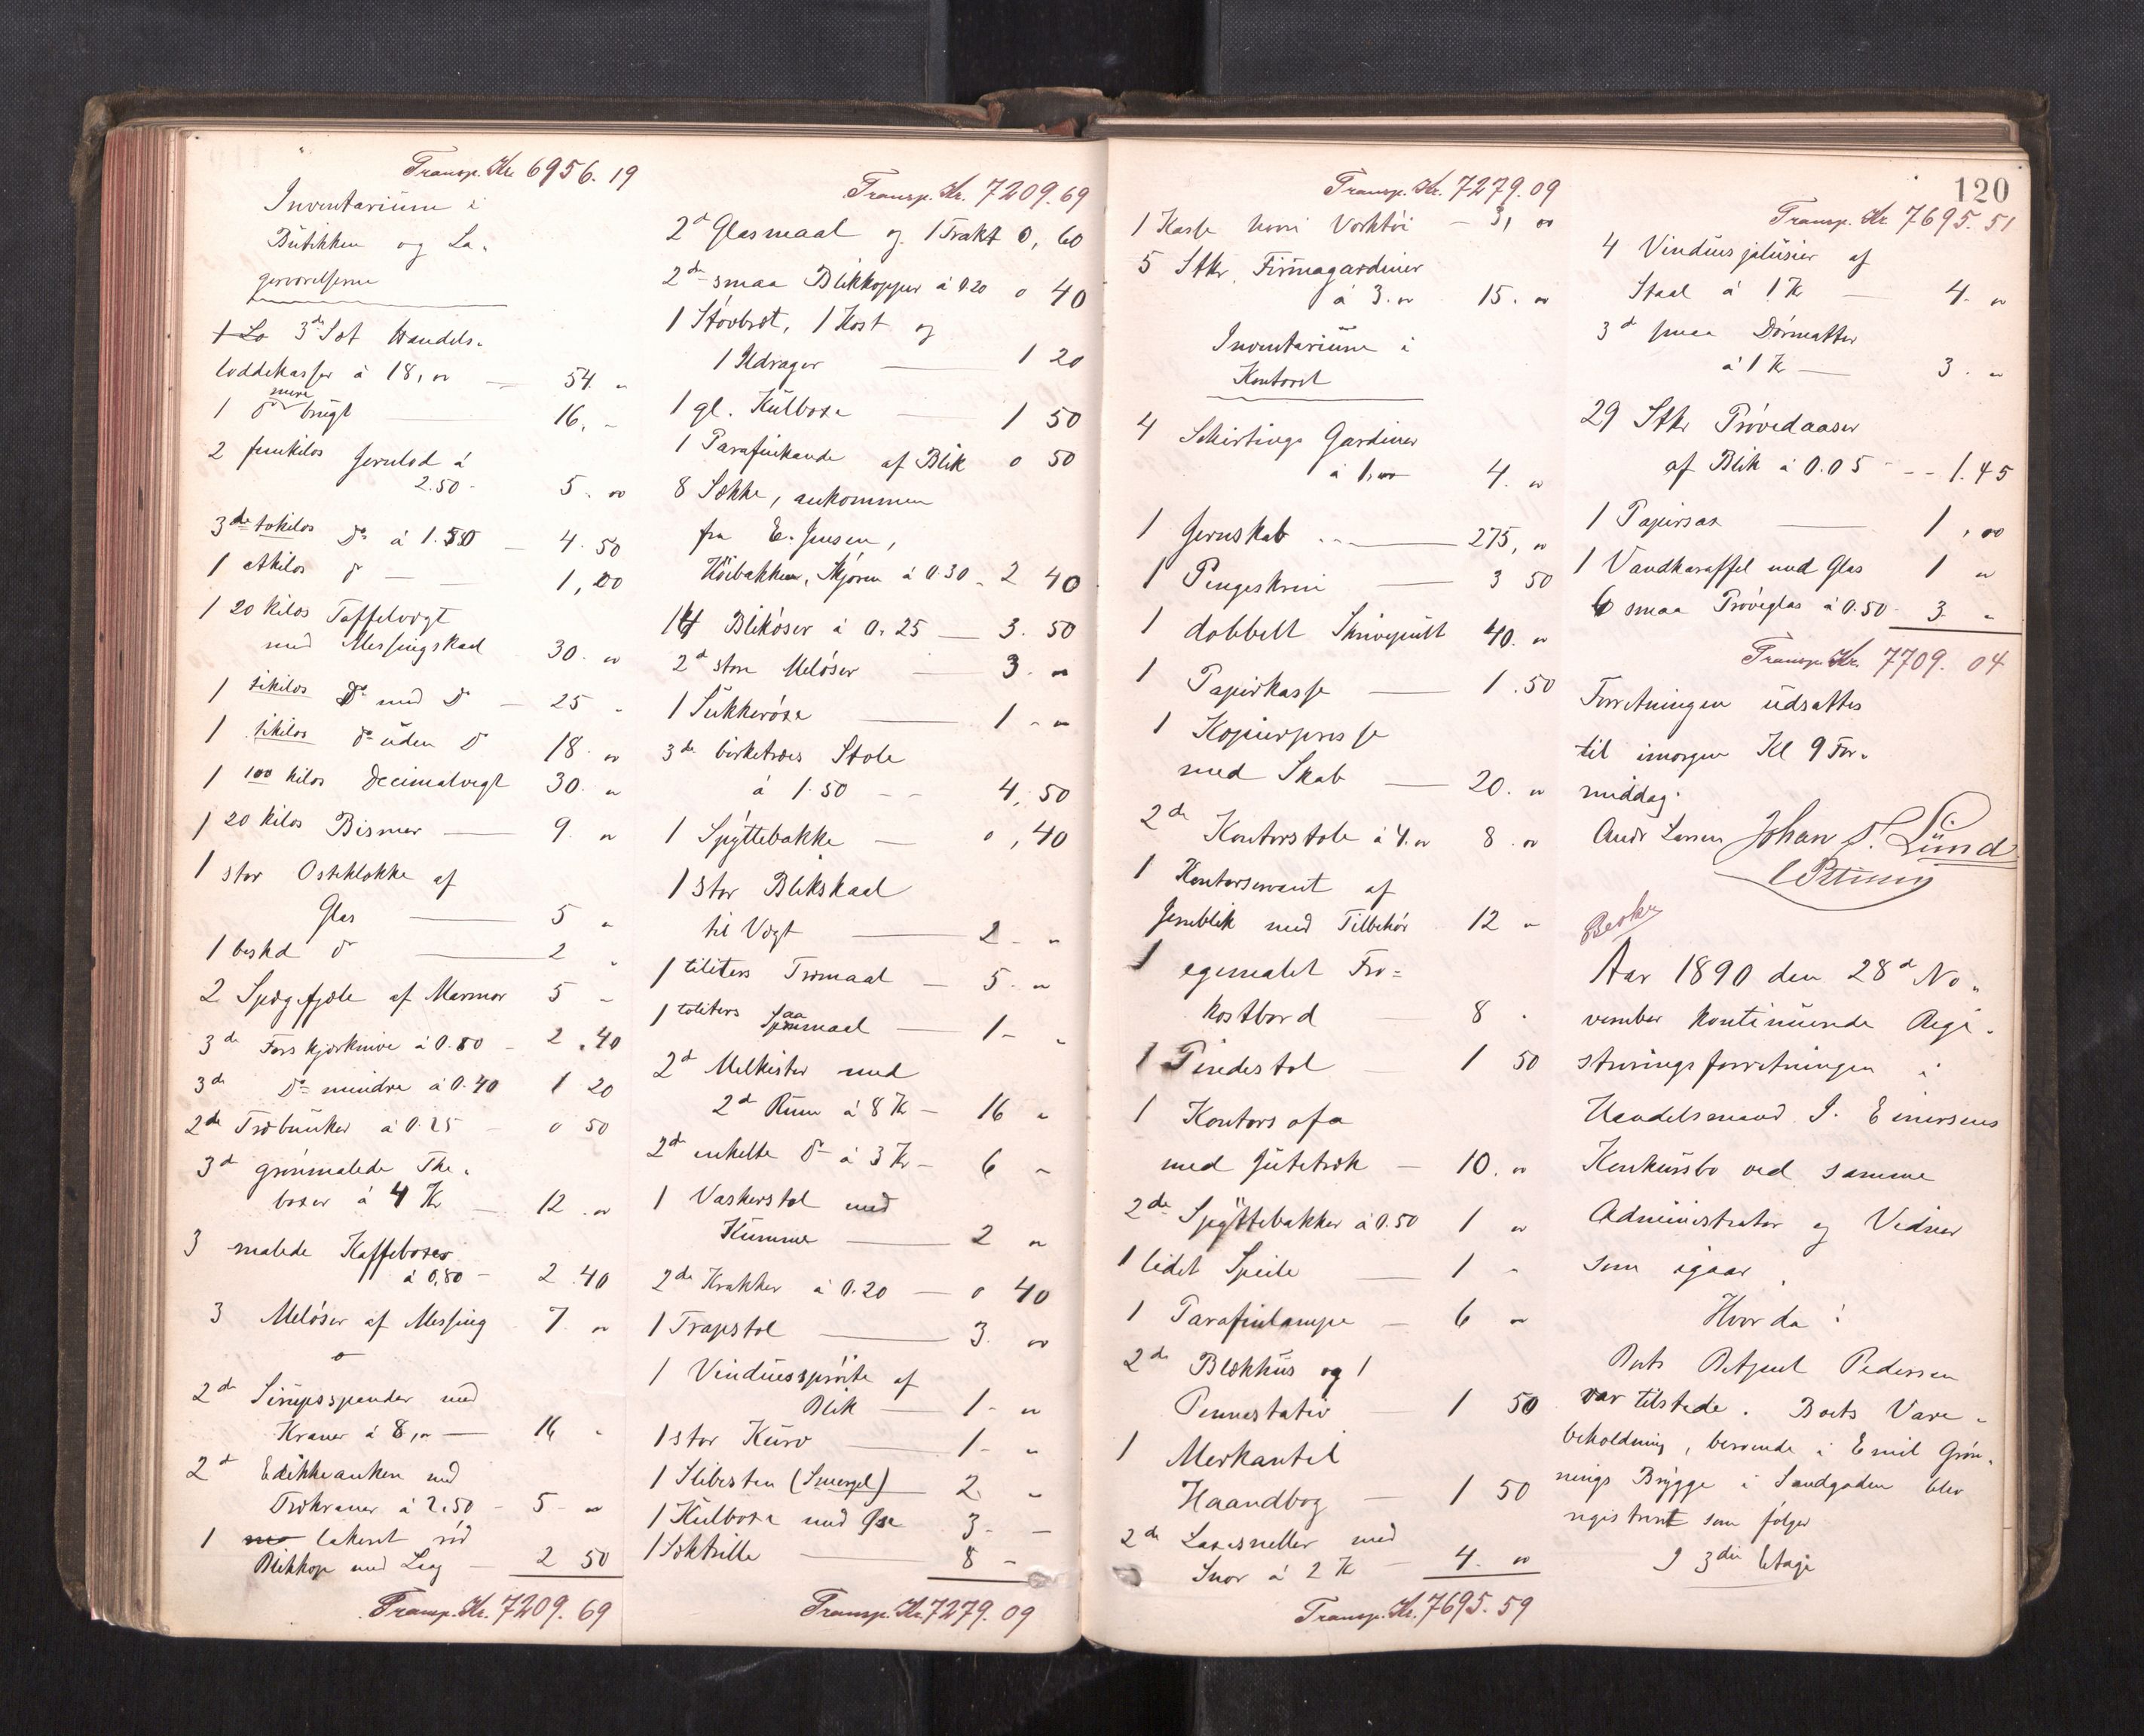 Transp. Kr. 6956.19
Inventarium i
Butikken og La-
gerværelserne
1 Lo 3de Sæt Handels-
loddekasser á 18,00 — 54. "
1 do mere brugt — 16. "
2 femkilos Jernlod á
2.50 - 5. 00
3de tokilos do á 1.50 — 4.50
1 etkilos do — 1,00
1 20 kilos Taffelvegt
med Messingskaal 30. 00
1 tikilos do med do — 25 "
1 tikilos do uden do 18. 00
1 100 kilos Decimalvegt 30. "
1 20 kilos Bismer — 9. 00
1 stor Osteklokke af
Glas — 5 "
1 beskd do — 2 "
2 Spegefjele af Marmor 5 "
3de Forskjærknive á 0.80 - 2.40
3de do mindre á 0.40 1 20
2de Træbunker á 0.25 - 0 50
3de grønmalede The-
boxer á 4 Kr — 12. 00
3 malede Kaffeboxer
á 0,80 - 2.40
3 Meløser af Messing 7. 00
2de Sirupsspander med
Kraner á 8,00 — 16 "
2de Edikkeankere med
Trækraner á 2.50 - 5 - 00
1 lakeret rød
Blikkop med Laag — 2 50
Transp. Kr. 7209.69
Transp. Kr. 7209.69
2de Glasmaal og 1 Trakt 0,60
2de smaa Blikkopper á 0.20 0 40
1 Støvbret, 1 Kost og
1 Ildrager — 1 20
1 gl. Kulboxe — 1 50
1 Parafinkande af Blik 0 50
8 Sække, ankommen
fra E. Jensen,
Høibakken, Skjørn á 0.30 - 2 40
14 Blikøser á 0.25 — 3.50
2de store Meløser — 3. "
1 Sukkerøse — 1 - "
3de birketræes Stole
á 1.50 - - 4,50
1 Spyttebakke — 0,40
1 stor Blikskaal
til Vegt — 2 - "
1 tiliters Træmaal — 5. "
1 toliters Spaamaal — 1 - "
2de Melkister med
2de Rum á 8 Kr — 16 "
2de enkelte do á 3 Kr — 6 "
1 Vaskerstol med
Kumme — 2 "
2de Krakker á 0.20 — 0 40
1 Trapstol — 3. 00
1 Vinduessprøite af
Blik — 1 - "
1 stor Kurv — 1 - "
1 Slibesten (Smergel) — 2 "
1 Kulboxe med Øse 3 - —
1 Sæktrille — 8 -
Transp. Kr. 7279.09
Transp. Kr. 7279.09
1 Kasse hvori Værktøi — 3, 00
5 Stkr. Firmagardiner
á 3.00 15. 00
Inventarium i
Kontoret
4 Schirtings Gardiner
á 1.00 4. 00
1 Jernskab — 275, 00
1 Pengeskrin — 3 50
1 dobbelt Skrivepult 40. 00
1 Papirkasse — 1.50
1 Kopierpresse
med Skab — 20. 00
2de Kontorstole á 4.00 8. 00
1 Kontorservant af
Jernblik med Tilbehør 12 "
1 egemalet Fro=
kostbord — 8 "
1 Pindestol — 1 50
1 Kontorsofa
med Jutetræk — 10. 00
2de Spyttebakker á 0.50 1 00
1 lidet Speile — 1 "
1 Parafinlampe — 6 "
2de Blækhus og 1
Pennestativ — 1 50
1 Merkantil
Haandbog — 1 50
2de Laxesneller med
Snor á 2 Kr — 4. 00
Transp. Kr. 7695.59
120
Transp. Kr 7695.51
4 Vinduesjalusier af
Staal á 1 Kr — 4. 00
3de smaa Dørmatter
á 1 Kr — 3. "
29 Stkr Prøvedaaser
af Blik á 0.05 - - 1.45
1 Papirsax — 1,00
1 Vandkaraffel med Glas 1 "
6 smaa Prøveglas á 0.50 - 3. "
Transp. Kr. 7709.04
Forretningen udsattes
til imorgen Kl 9 For-
middag.
Andr Larsen Johan S. Lund
Aar 1890 den 28de No-
vember kontinuerede Regi-
streringsforretningen i
Handelsmand J. Einersens
Konkursbo ved samme
Administrator og Vidner
som igaar.
Hvorda:
Boets Betjent Pedersen
var tilstede. Boets Vare-
beholdning, beroende i Emil Grøn-
nings Brygge i Sandgaden blev
registreret som følger
I 3die Etage